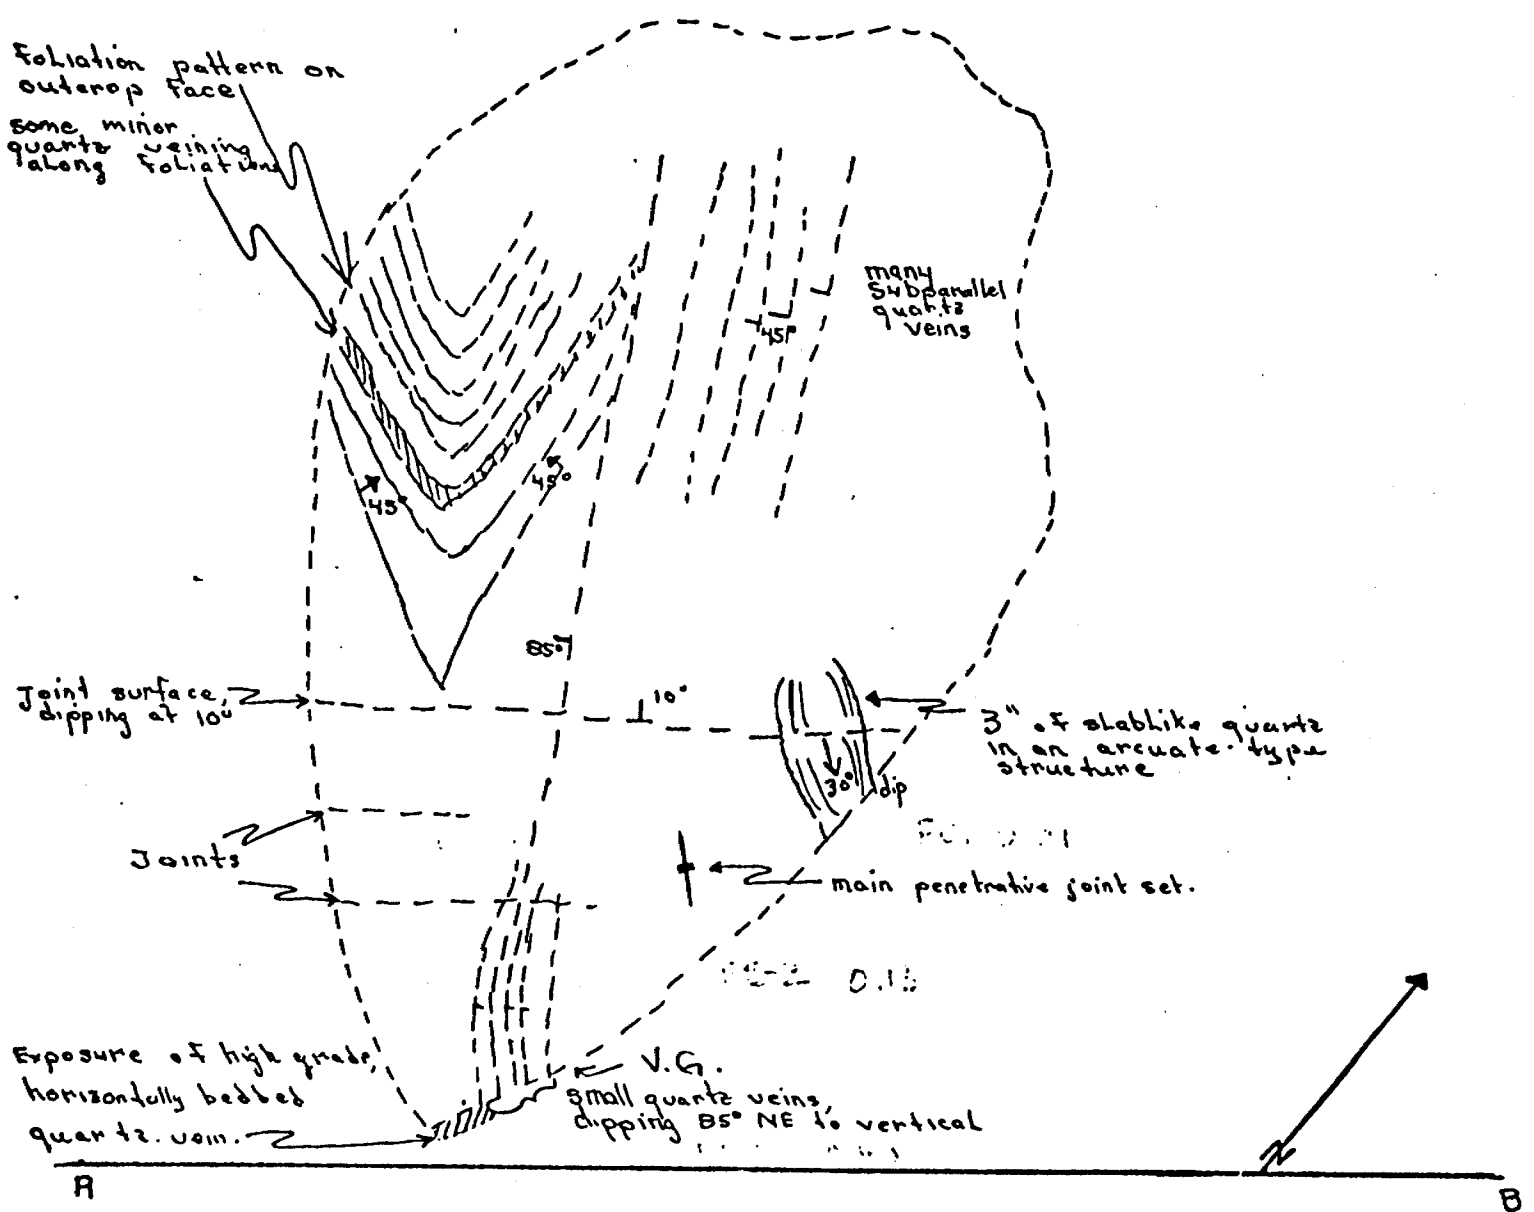 Foliation pattern on
outcrop face
some minor
quartz veining
along foliation
many
subparallel
quartz
veins
45°
45°
45°
85°
Joint surface,
dipping at 10°
10°
3" of slablike quartz
in an arcuate-type
structure
30° dip
Joints
main penetrative joint set.
0.16
Exposure of high grade,
horizontally bedded
quartz. vein.
V.G.
small quartz veins,
dipping 85° NE to vertical
A
B